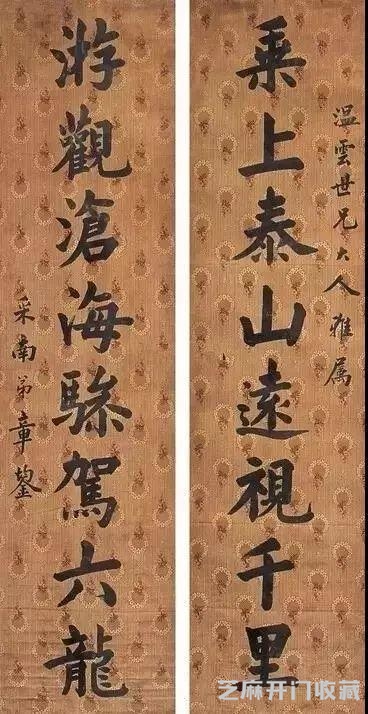 温雲世兄大人雅属
乘上泰山遠視千里
游觀滄海驂駕六龍
采南弟章鋆
芝麻开门收藏